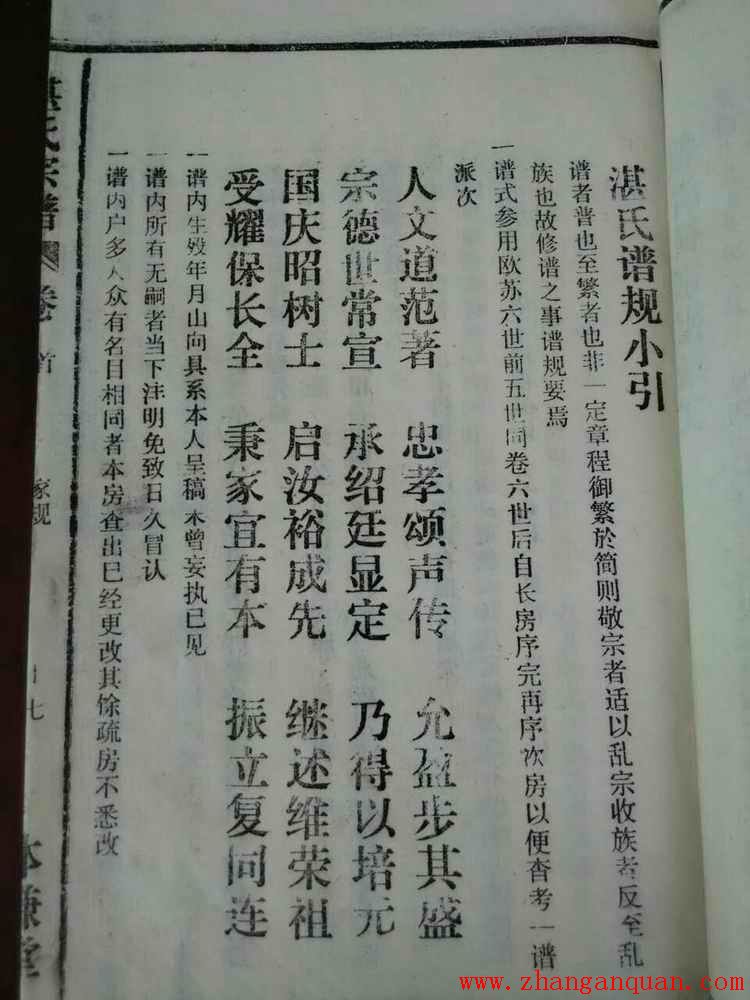 湛氏谱规小引
谱者普也至繁者也非一定章程御繁於简则敬宗者适以乱宗收族者反至乱
族也故修谱之事谱规要焉
一谱式参用欧苏六世前五世同卷六世后自长房序完再序次房以便查考一谱
派次
人文道范著 忠孝颂声传 允盈步其盛
宗德世常宣 承绍廷显定 乃得以培元
国庆昭树士 启汝裕成先 继述维荣祖
受耀保长全 秉家宜有本 振立复同连
一谱内生殁年月山向具系本人呈稿未曾妄执己见
一谱内所有无嗣者当下注明免致日久冒认
一谱内户多人众有名目相同者本房查出已经更改其馀疏房不悉改
湛氏宗谱 卷首 家规 七 本谦堂
www.zhanganquan.com